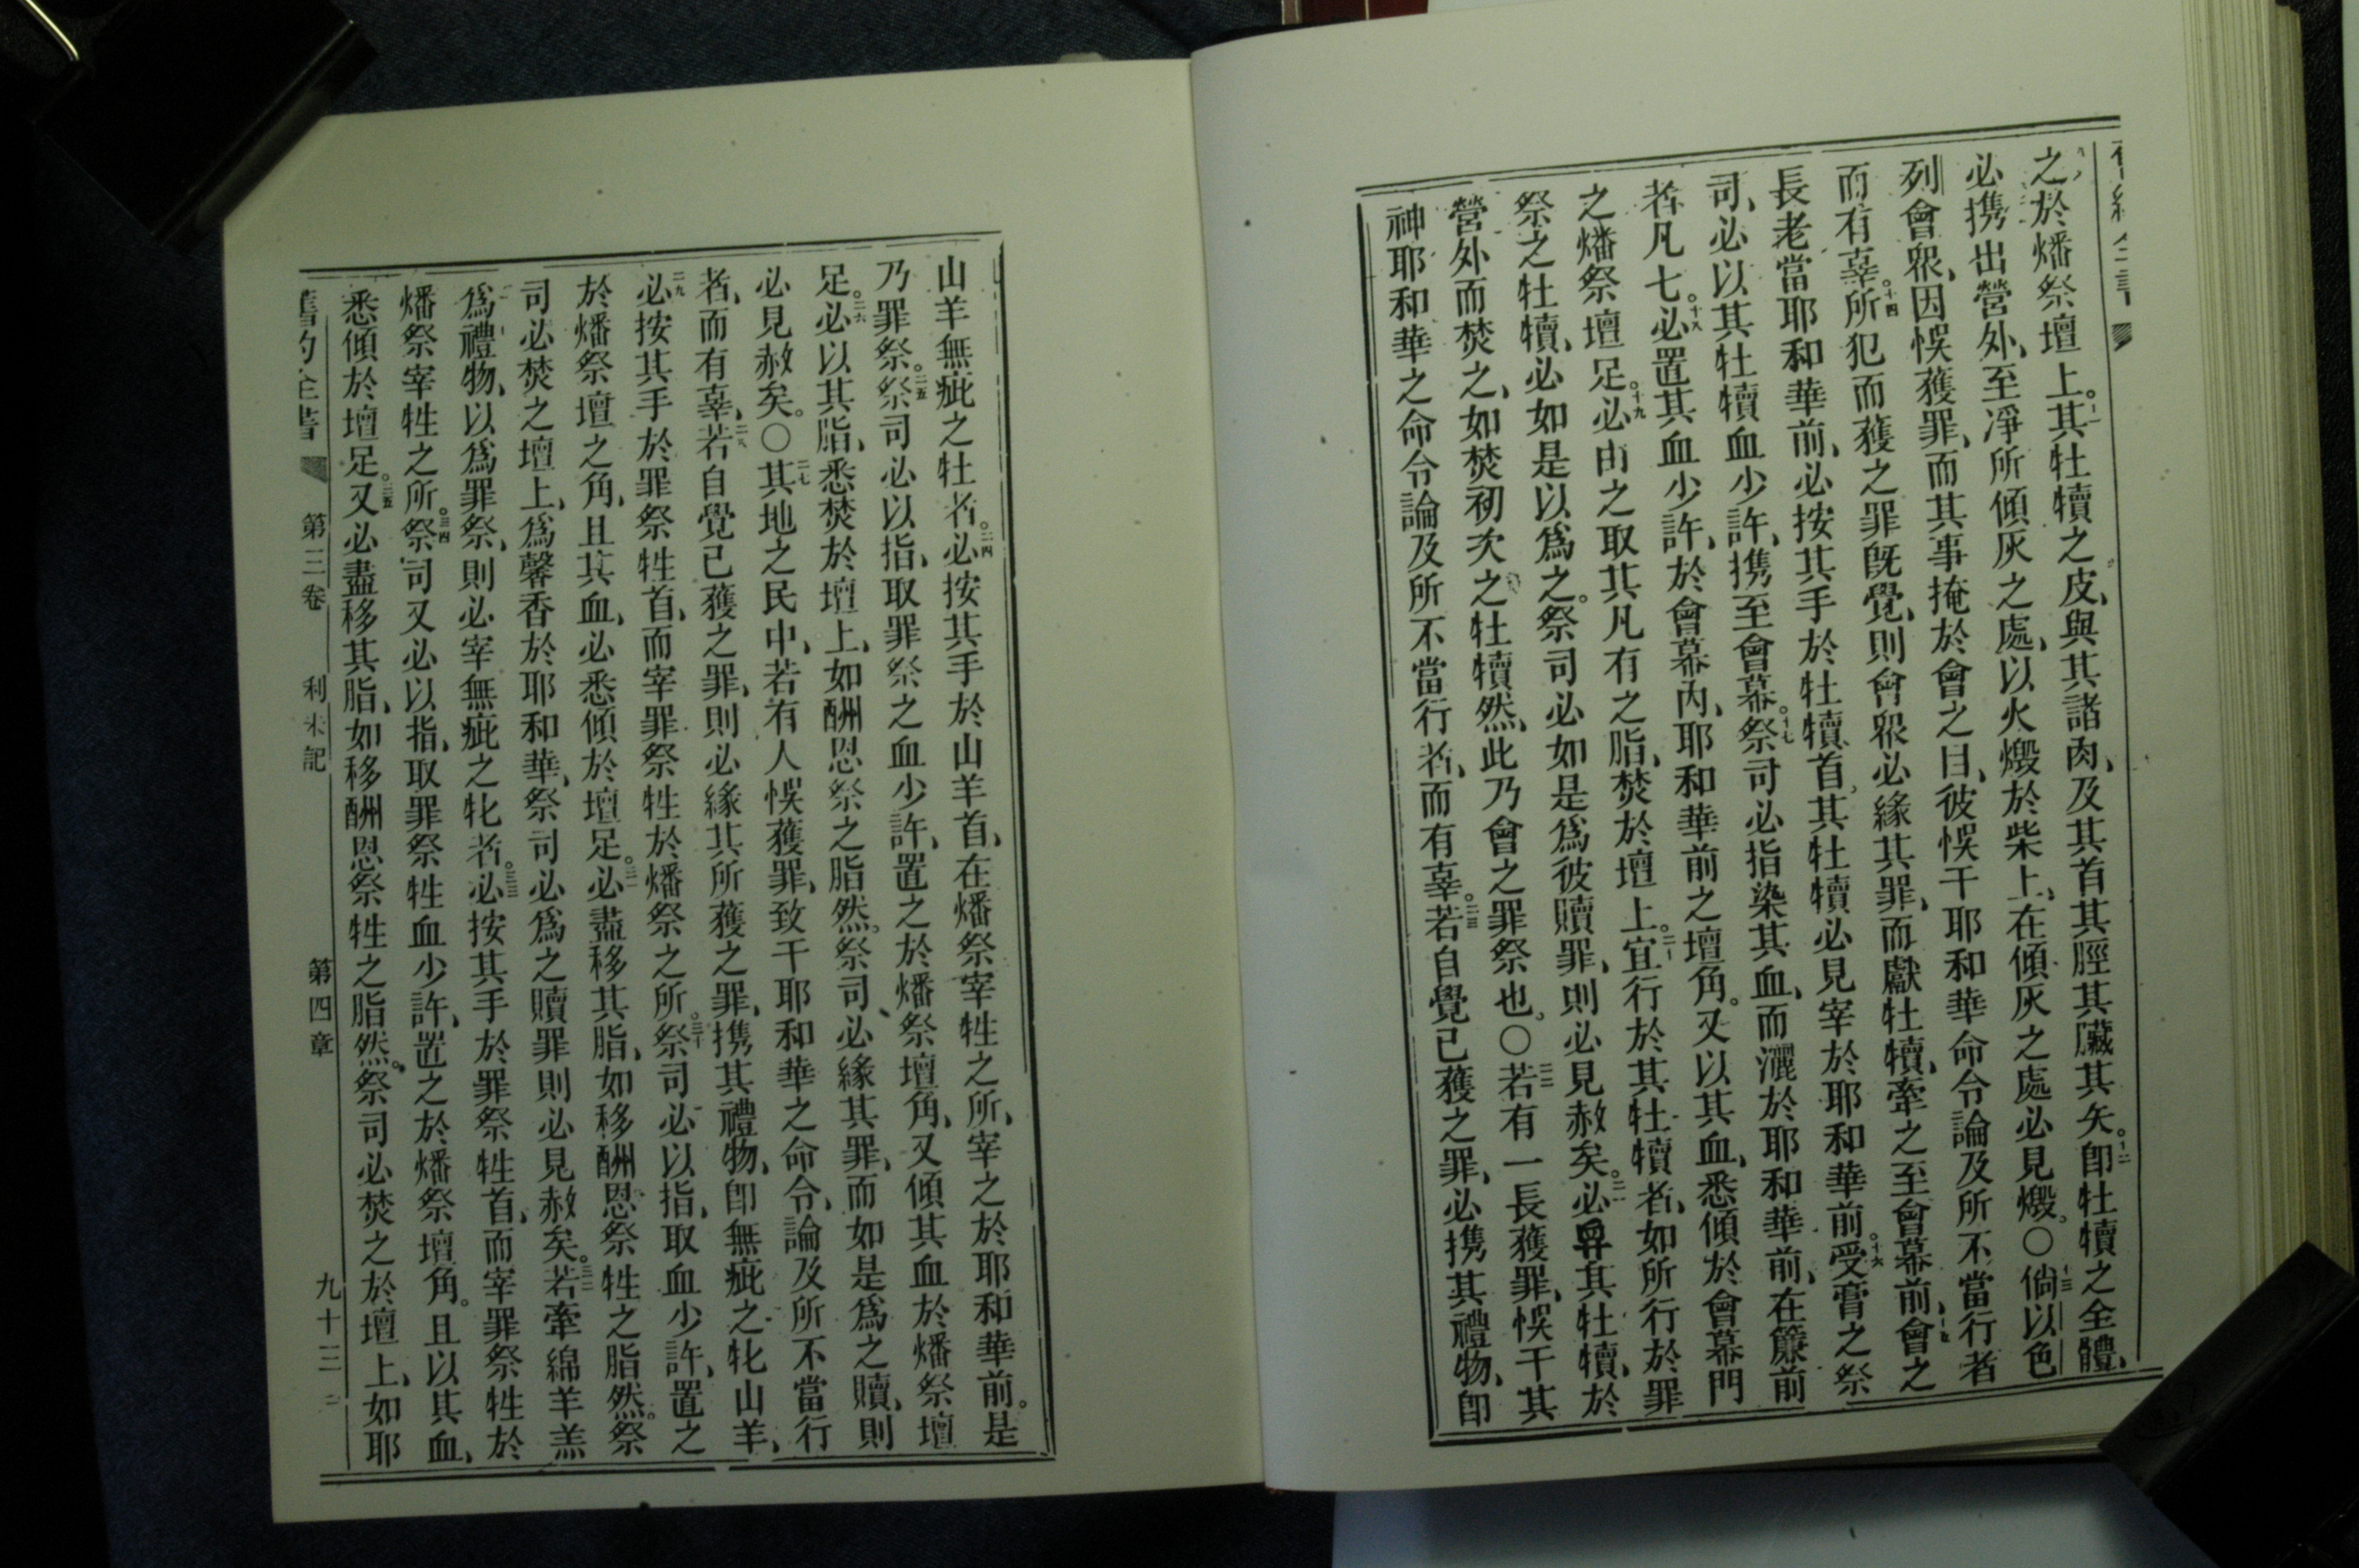 之於燔祭壇上。十一其牡犢之皮、與其諸肉、及其首其脛其臟其矢。十二卽牡犢之全體、
必攜出營外、至淨所傾灰之處、以火燬於柴上、在傾灰之處必見燬。○十三倘以色
列會眾、因悞獲罪、而其事掩於會之目、彼悞干耶和華命令論及所不當行者
而有辜。十四所犯而獲之罪旣覺、則會眾必緣其罪、而獻牡犢、牽之至會幕前、十五會之
長老當耶和華前、必按其手於牡犢首、其牡犢必見宰於耶和華前。十六受膏之祭
司、必以其牡犢血少許、攜至會幕。十七祭司必指染其血、而灑於耶和華前、在簾前
者凡七。十八必置其血少許、於會幕內、耶和華前之壇角。又以其血、悉傾於會幕門
之燔祭壇足。十九必由之取其凡有之脂、焚於壇上。二十宜行於其牡犢者、如所行於罪
祭之牡犢、必如是以爲之。祭司必如是爲彼贖罪、則必見赦矣。二一必舁其牡犢、於
營外而焚之、如焚初次之牡犢然、此乃會之罪祭也。○二二若有一長獲罪、悞干其
神耶和華之命令論及所不當行者、而有辜。二三若自覺已獲之罪、必攜其禮物、卽
山羊無疵之牡者。二四必按其手於山羊首、在燔祭宰牲之所、宰之於耶和華前。是
乃罪祭。二五祭司必以指、取罪祭之血少許、置之於燔祭壇角、又傾其血於燔祭壇
足。二六必以其脂、悉焚於壇上、如酬恩祭之脂然。祭司、必緣其罪、而如是爲之贖、則
必見赦矣。○二七其地之民中、若有人悞獲罪、致干耶和華之命令、論及所不當行
者、而有辜、二八若自覺已獲之罪、則必緣其所獲之罪、攜其禮物、卽無疵之牝山羊、
二九必按其手於罪祭牲首、而宰罪祭牲於燔祭之所。三十祭司必以指、取血少許、置之
於燔祭壇之角、且其血、必悉傾於壇足。三一必盡移其脂、如移酬恩祭牲之脂然。祭
司必焚之壇上、爲馨香於耶和華、祭司必爲之贖罪則必見赦矣。三二若牽綿羊羔
爲禮物、以爲罪祭、則必宰無疵之牝者。三三必按其手於罪祭牲首、而宰罪祭牲於
燔祭宰牲之所。三四祭司又必以指、取罪祭牲血少許、置之於燔祭壇角。且以其血、
悉傾於壇足。三五又必盡移其脂、如移酬恩祭牲之脂然。祭司必焚之於壇上、如耶
舊約全書　第三卷　利未記　第四章　九十三